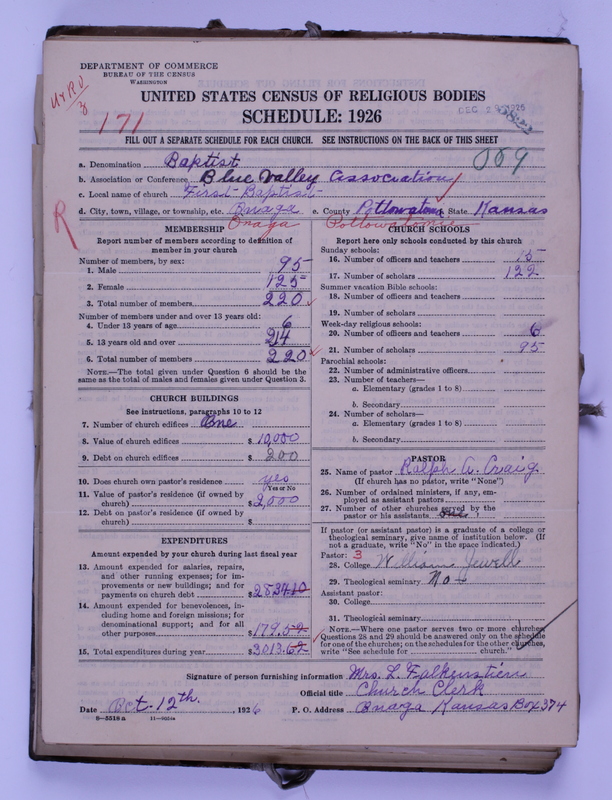 DEPARTMENT OF COMMERCE
BUREAU OF THE CENSUS
WASHINGTON
UNITED STATES CENSUS OF RELIGIOUS BODIES
SCHEDULE: 1926
171
FILL OUT A SEPARATE SCHEDULE FOR EACH CHURCH. SEE INSTRUCTIONS ON THE BACK OF THIS SHEET
a. Denomination Baptist
b. Association or Conference Blue Valley Association
c. Local name of church First Baptist
d. City, town, village, or township, etc. Onaga e. County Pottowatomie State Kansas
R Onaga Pottowatomie
MEMBERSHIP
Report number of members according to definition of member in your church
Number of members, by sex:
1. Male 95
2. Female 125
3. Total number of members 220
Number of members under and over 13 years old:
4. Under 13 years of age 6
5. 13 years old and over 214
6. Total number of members 220
NOTE.—The total given under Question 6 should be the
same as the total of males and females given under Question 3.
CHURCH BUILDINGS
See instructions, paragraphs 10 to 12
7. Number of church edifices One
8. Value of church edifices $ 10,000
9. Debt on church edifices $ 200
10. Does church own pastor's residence yes
(Yes or No)
11. Value of pastor's residence (if owned by
church) $ 2,000
12. Debt on pastor's residence (if owned by
church) $
EXPENDITURES
Amount expended by your church during last fiscal year
13. Amount expended for salaries, repairs,
and other running expenses; for im-
provements or new buildings; and for
payments on church debt $ 2834.10
14. Amount expended for benevolences, in-
cluding home and foreign missions; for
denominational support; and for all
other purposes $ 179.52
15. Total expenditures during year $ 3013.62
CHURCH SCHOOLS
Report here only schools conducted by this church
Sunday schools:
16. Number of officers and teachers 15
17. Number of scholars 122
Summer vacation Bible schools:
18. Number of officers and teachers
19. Number of scholars
Week-day religious schools:
20. Number of officers and teachers 6
21. Number of scholars 95
Parochial schools:
22. Number of administrative officers
23. Number of teachers—
a. Elementary (grades 1 to 8)
b. Secondary
24. Number of scholars—
a. Elementary (grades 1 to 8)
b. Secondary
PASTOR
25. Name of pastor Ralph A. Craig
(If church has no pastor, write "None")
26. Number of ordained ministers, if any, em-
ployed as assistant pastors
27. Number of other churches served by the
pastor or his assistants one
If pastor (or assistant pastor) is a graduate of a college or
theological seminary, give name of institution below. (If
not a graduate, write "No" in the space indicated.)
Pastor: 3
28. College William Jewell
29. Theological seminary No
Assistant pastor:
30. College
31. Theological seminary
NOTE.—Where one pastor serves two or more churches,
Questions 28 and 29 should be answered only on the schedule
for one of the churches; on the schedules for the other churches,
write "See schedule for church."
Signature of person furnishing information Mrs. L. Falkenstien
Official title Church Clerk
Date Oct. 12th, 1926 P. O. Address Onaga Kansas Box 374
8—5518 a